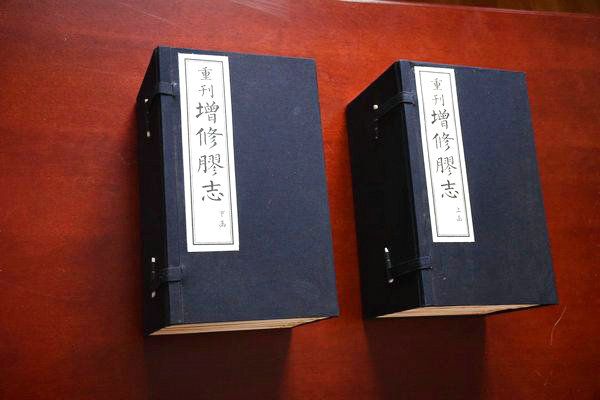 重刊增修膠志
下函
重刊增修膠志
上函